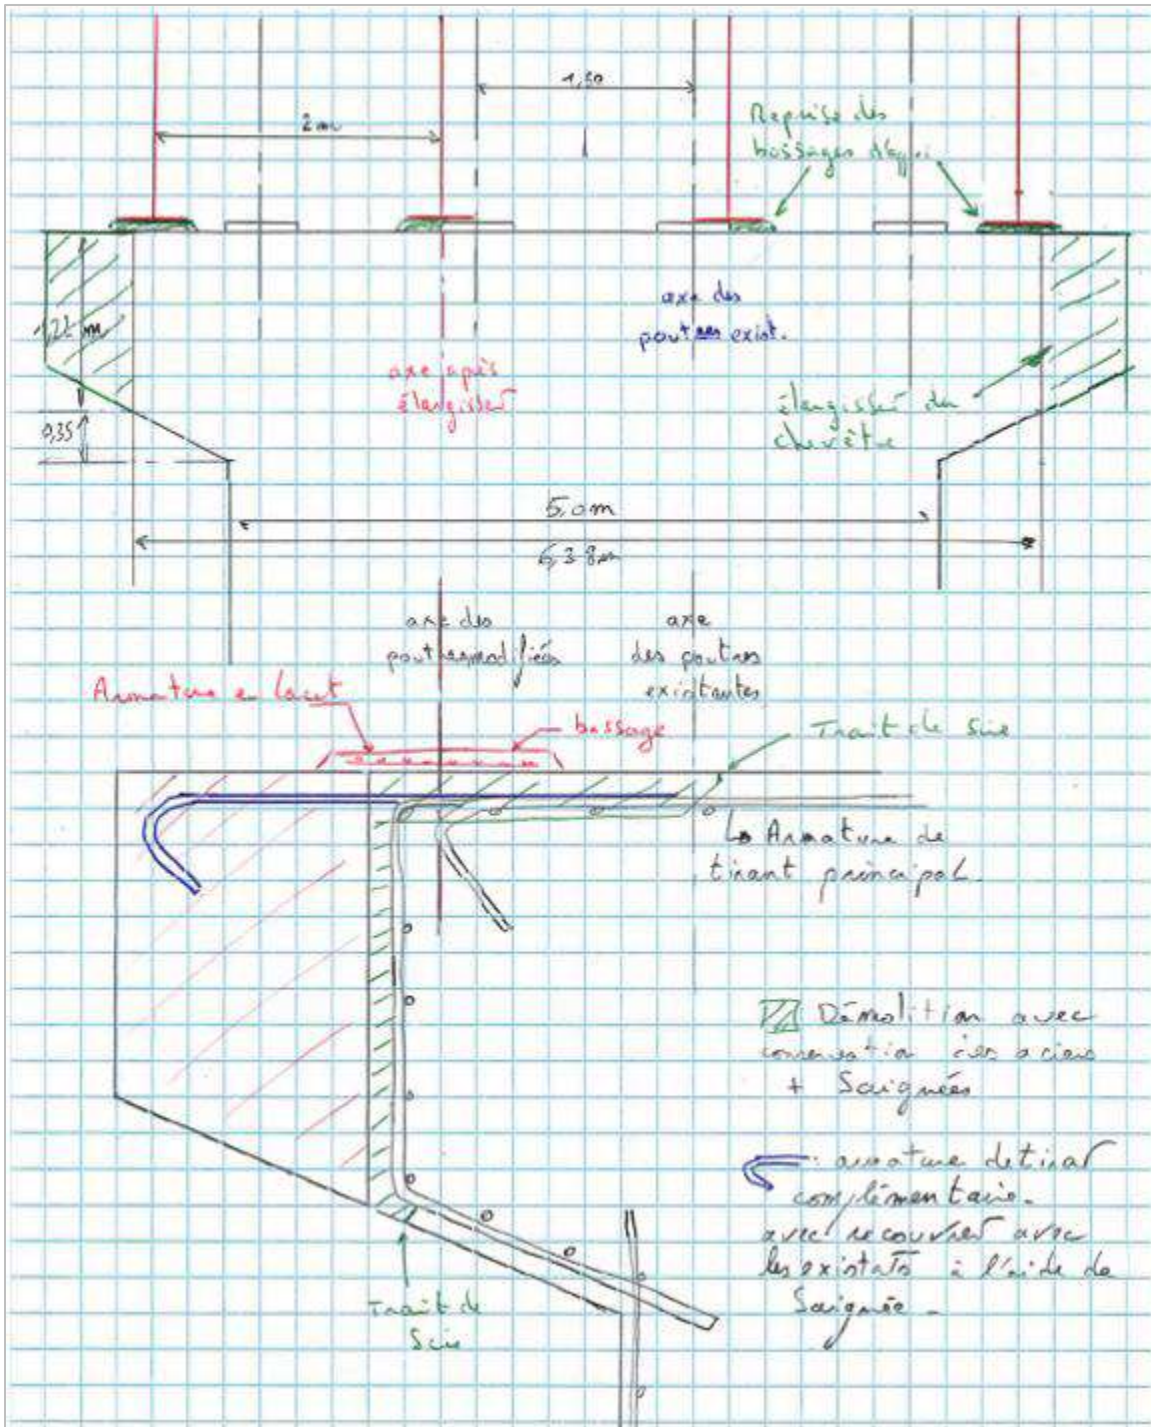 1,50
2m
Reprise des
bossages d'appui
axe des
poutres exist.
1,22 m
axe après
élargisset
élargisset du
chevêtre
0,35
5,0m
6,38m
axe des
poutres modifiées
axe
des poutres
existantes
Armature en lacet
bossage
Trait de Scie
Armature de
tirant principal.
Démolition avec
conservation des aciers
+ Saignées
: armature de tirat
complémentaire.
avec recouvret avec
les existats à l'aide de
Saignée -
Trait de
Scie